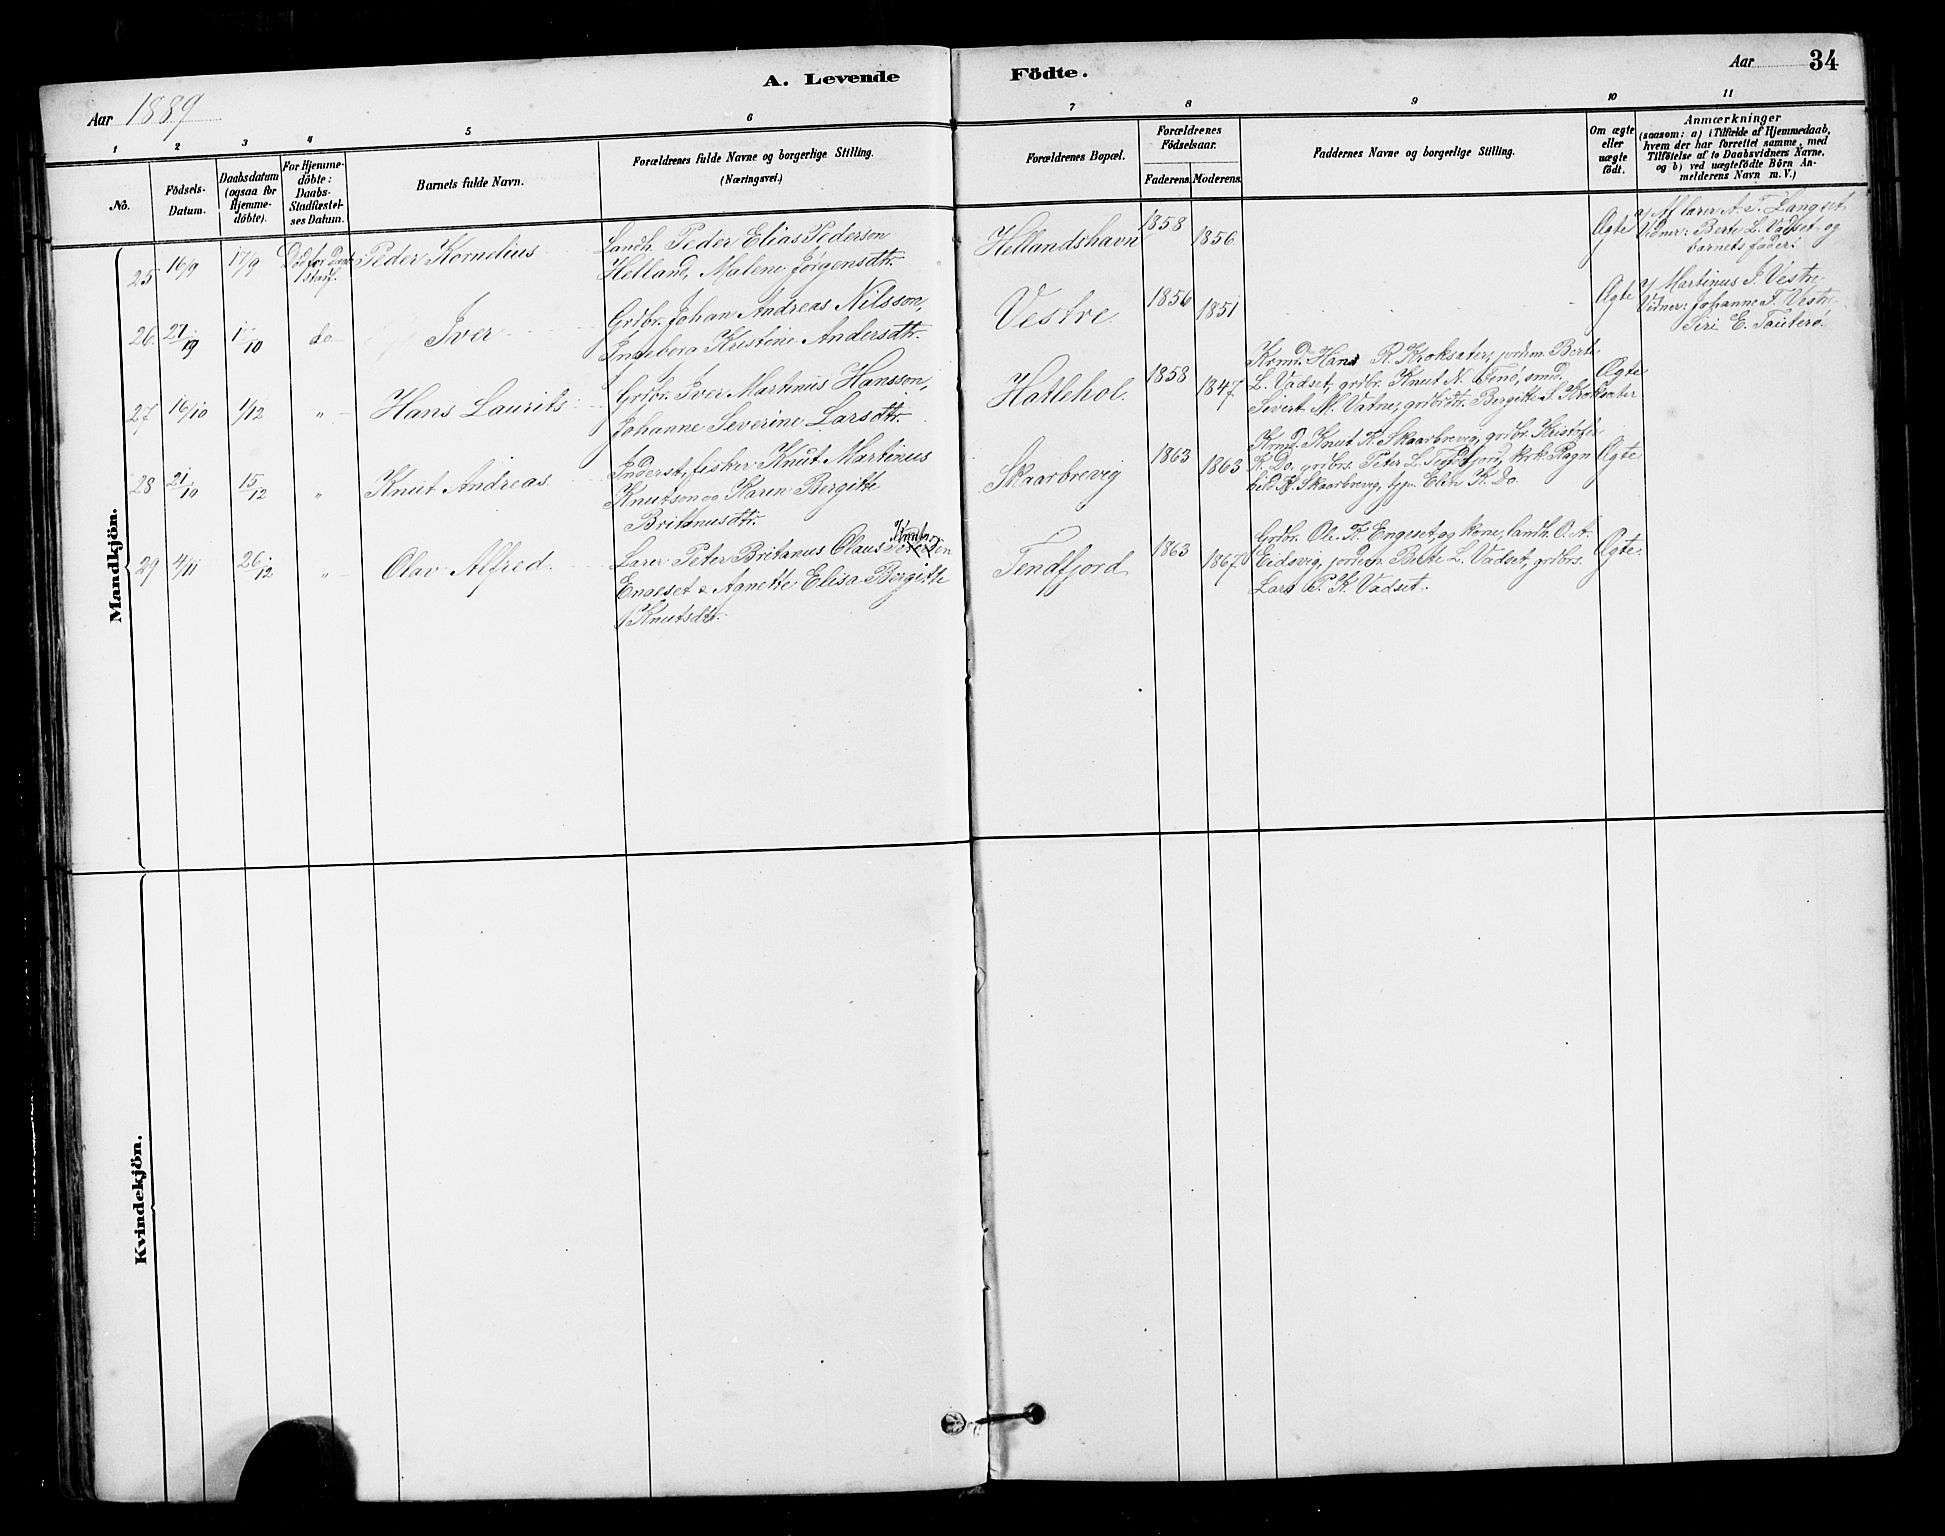 A. Levende Födte.
Aar 34
Aar 1889
1 2 3 4 5 6 7 8 9 10 11
No.
Födsels-Datum.
Daabsdatum (ogsaa for Hjemmedöbte).
For Hjemmedöbte: Daabs-Stadfæstelses Datum.
Barnets fulde Navn.
Forældrenes fulde Navne og borgerlige Stilling.
(Næringsvei.)
Forældrenes Bopæl.
Forældrenes Födselsaar.
Faderens. Moderens.
Faddernes Navne og borgerlige Stilling.
Om ægte eller uægte födt.
Anmærkninger
(saasom: a) i Tilfælde af Hjemmedaab,
hvem der har forrettet samme, med
Tilföielse af to Daabsvidners Navne.
og b) ved uægtefödte Börn Anmelderens Navn m. V.)
Mandkjön.
25 16/9 17/9 Död för Daabs stadf. Peder Kornelius
Landh. Peder Elias Pederson
Helland, Malene Jørgensdtr.
Hellandshavn 1858 1856
Ægte
a/ Af lærer A. T. Langset
Vidner: Berte L. Vadset og
barnets fader.
26 27/9 1/10 do Iver
Grdbr. Johan Andreas Nilsson,
Ingeborg Kristine Andersdtr.
Vestre 1856 1851
Ægte
a/ Martinus J. Vestre
Vidner: Johanne T. Vestre
Siri E. Tauterø
27 16/10 1/12 „ Hans Laurits
Grdbr. Iver Martinus Hansson,
Johanne Severine Larsdtr.
Hatlehol. 1858 1847
Krmd. Hans R. Kroksæter, jordem. Berte
L. Vadset, grdbr. Knut N. Tenø, smed
Sivert M. Vatne, grdbrdtr. Bergitte S. Kroksæter
Ægte
28 21/10 15/12 „ Knut Andreas
Inderst, fisker Knut Martinus
Knutson og Karen Bergitte
Britanusdtr.
Skaarbrevig 1863 1863
Krmd. Knut K. Skaarbrevig, grdbr. Kristofer
K. Do, grdbrs. Peter L. Tendfjord, krk. Ragn
hild K. Skaarbrevig, tjp. Elen K. Do
Ægte
29 4/11 26/12 „ Olav Alfred.
Lærer Peter Britanus Claus
Engeset & Agnette Elisa Bergitte
Knutsdtr.
Tendfjord 1863 1867
Grdbr. Ole K. Engeset og kone, landh. O. A.
Eidsvig, jordem. Berte L. Vadset, grdbrs.
Lars P. K. Vadset.
Ægte
Kvindekjön.